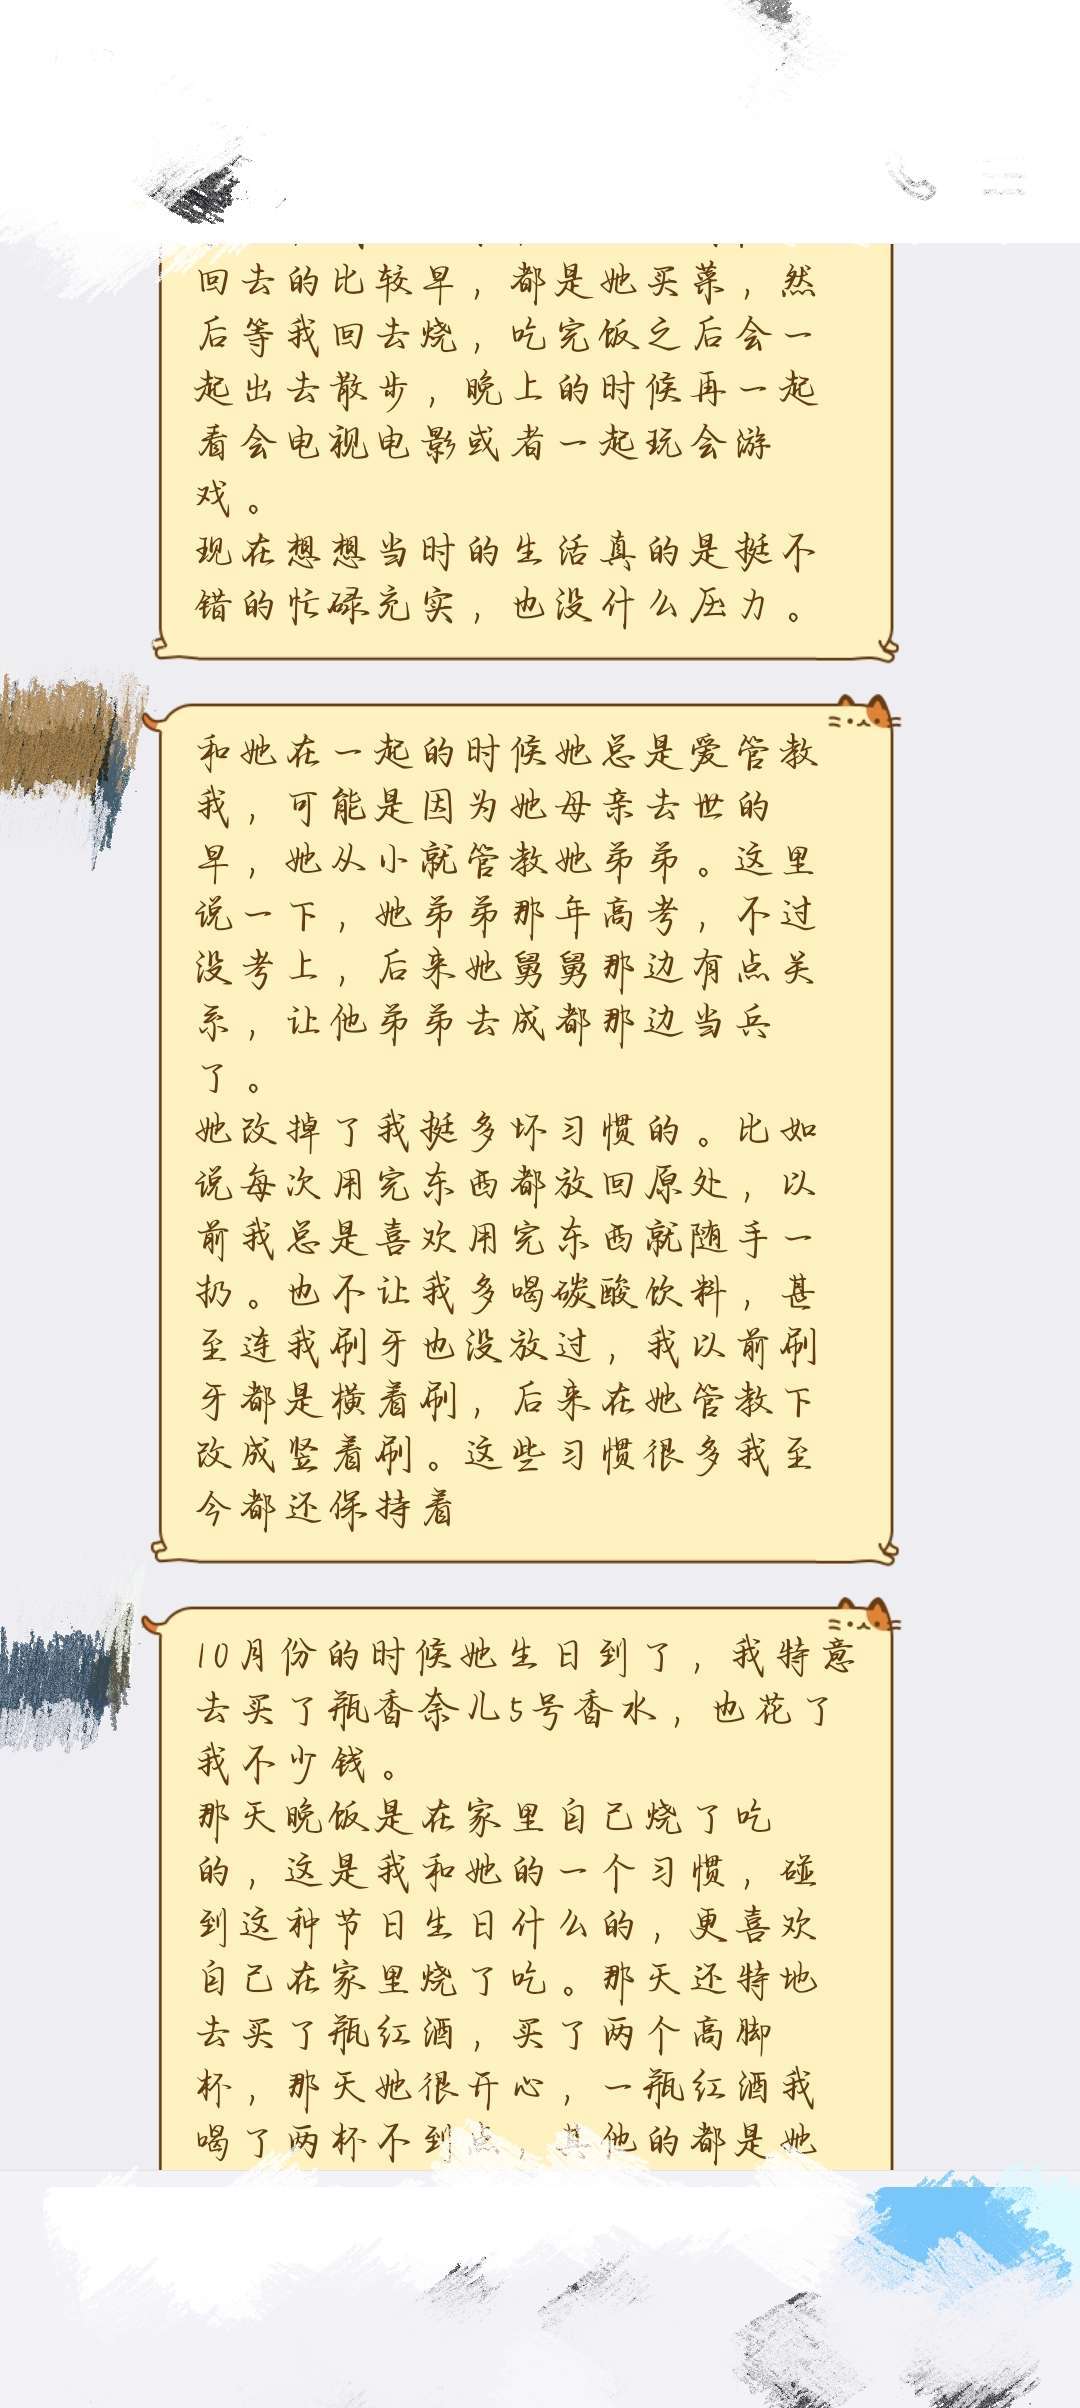 回去的比较早，都是她买菜，然
后等我回去烧，吃完饭之后会一
起出去散步，晚上的时候再一起
看会电视电影或者一起玩会游
戏。
现在想想当时的生活真的是挺不
错的忙碌充实，也没什么压力。
和她在一起的时候她总是爱管教
我，可能是因为她母亲去世的
早，她从小就管教她弟弟。这里
说一下，她弟弟那年高考，不过
没考上，后来她舅舅那边有点关
系，让他弟弟去成都那边当兵
了。
她改掉了我挺多坏习惯的。比如
说每次用完东西都放回原处，以
前我总是喜欢用完东西就随手一
扔。也不让我多喝碳酸饮料，甚
至连我刷牙也没放过，我以前刷
牙都是横着刷，后来在她管教下
改成竖着刷。这些习惯很多我至
今都还保持着
10月份的时候她生日到了，我特意
去买了瓶香奈儿5号香水，也花了
我不少钱。
那天晚饭是在家里自己烧了吃
的，这是我和她的一个习惯，碰
到这种节日生日什么的，更喜欢
自己在家里烧了吃。那天还特地
去买了瓶红酒，买了两个高脚
杯，那天她很开心，一瓶红酒我
喝了两杯不到点，其他的都是她